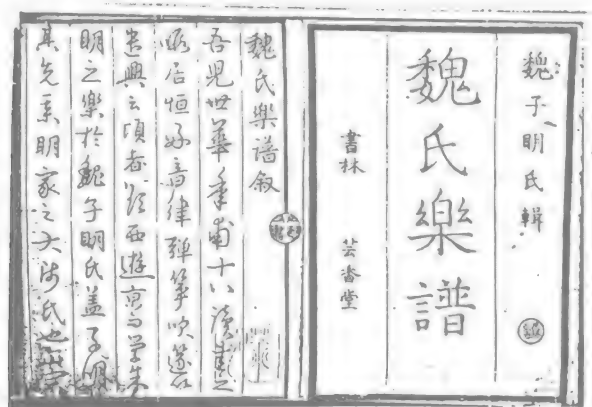 魏子明氏輯
魏氏樂譜
書林 芸香堂
魏氏樂譜叙
吾兒世華年甫十八讀書之
暇居恒好音律弾箏吹篴以
遣興云頃者欲西遊京
明之樂於魏子明氏蓋子明
其先系明家之大師氏也